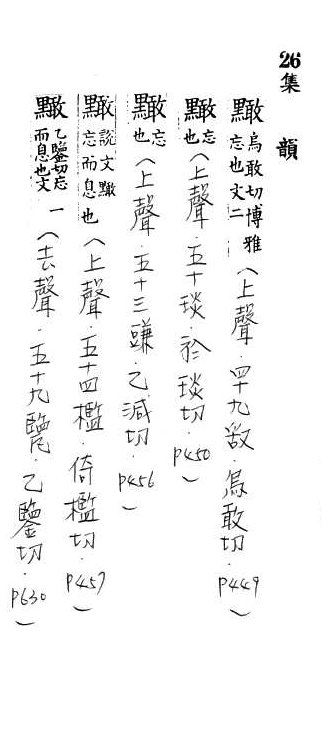 26集韻
黬烏敢切博雅忘也文二(上聲．四十九敢．烏敢切．P449)
忘也(上聲．五十琰．於琰切．P450)
忘也(上聲．五十三豏．乙減切．P456)
說文黬忘而息也(上聲．五十四檻．倚檻切．P457)
乙鑒切忘而息也文一(去聲．五十九鑒．乙鑒切．P630)